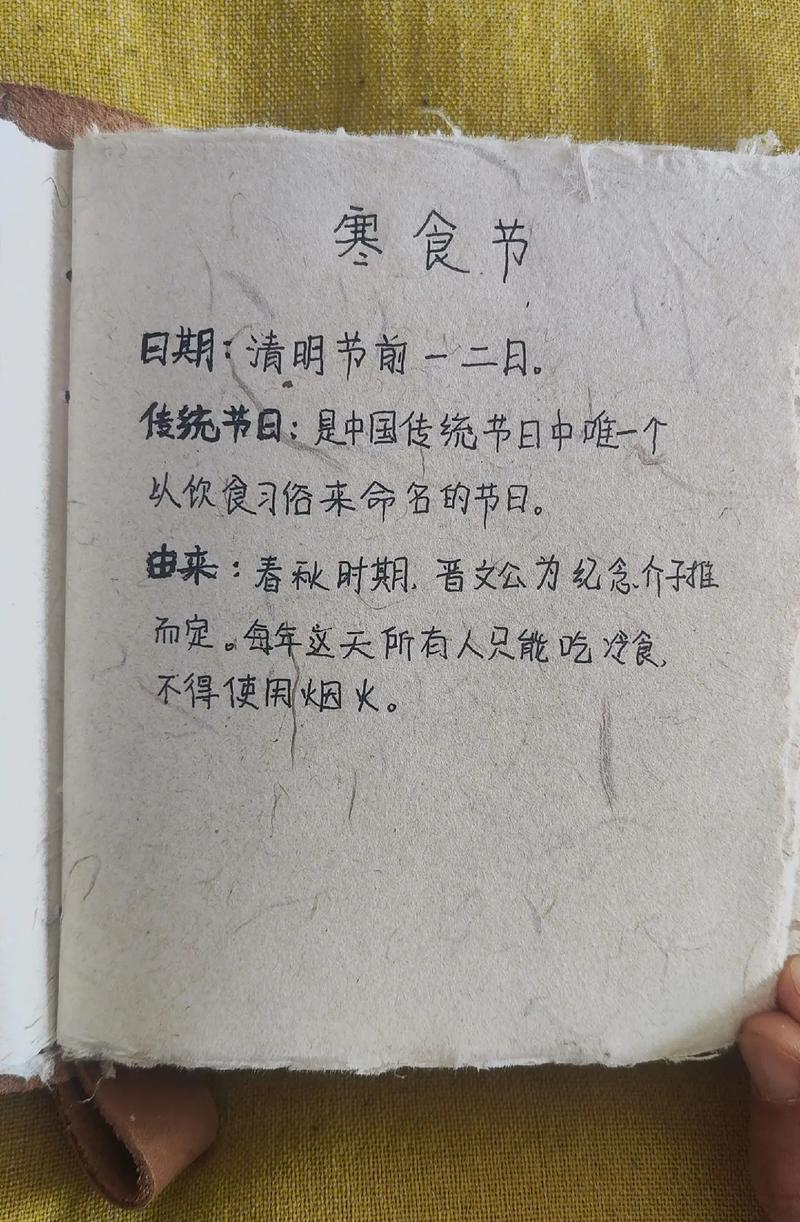 寒食节
日期：清明节前一二日。
传统节日：是中国传统节日中唯一个
以饮食习俗来命名的节日。
由来：春秋时期，晋文公为纪念介子推
而定。每年这天所有人只能吃冷食，
不得使用烟火。